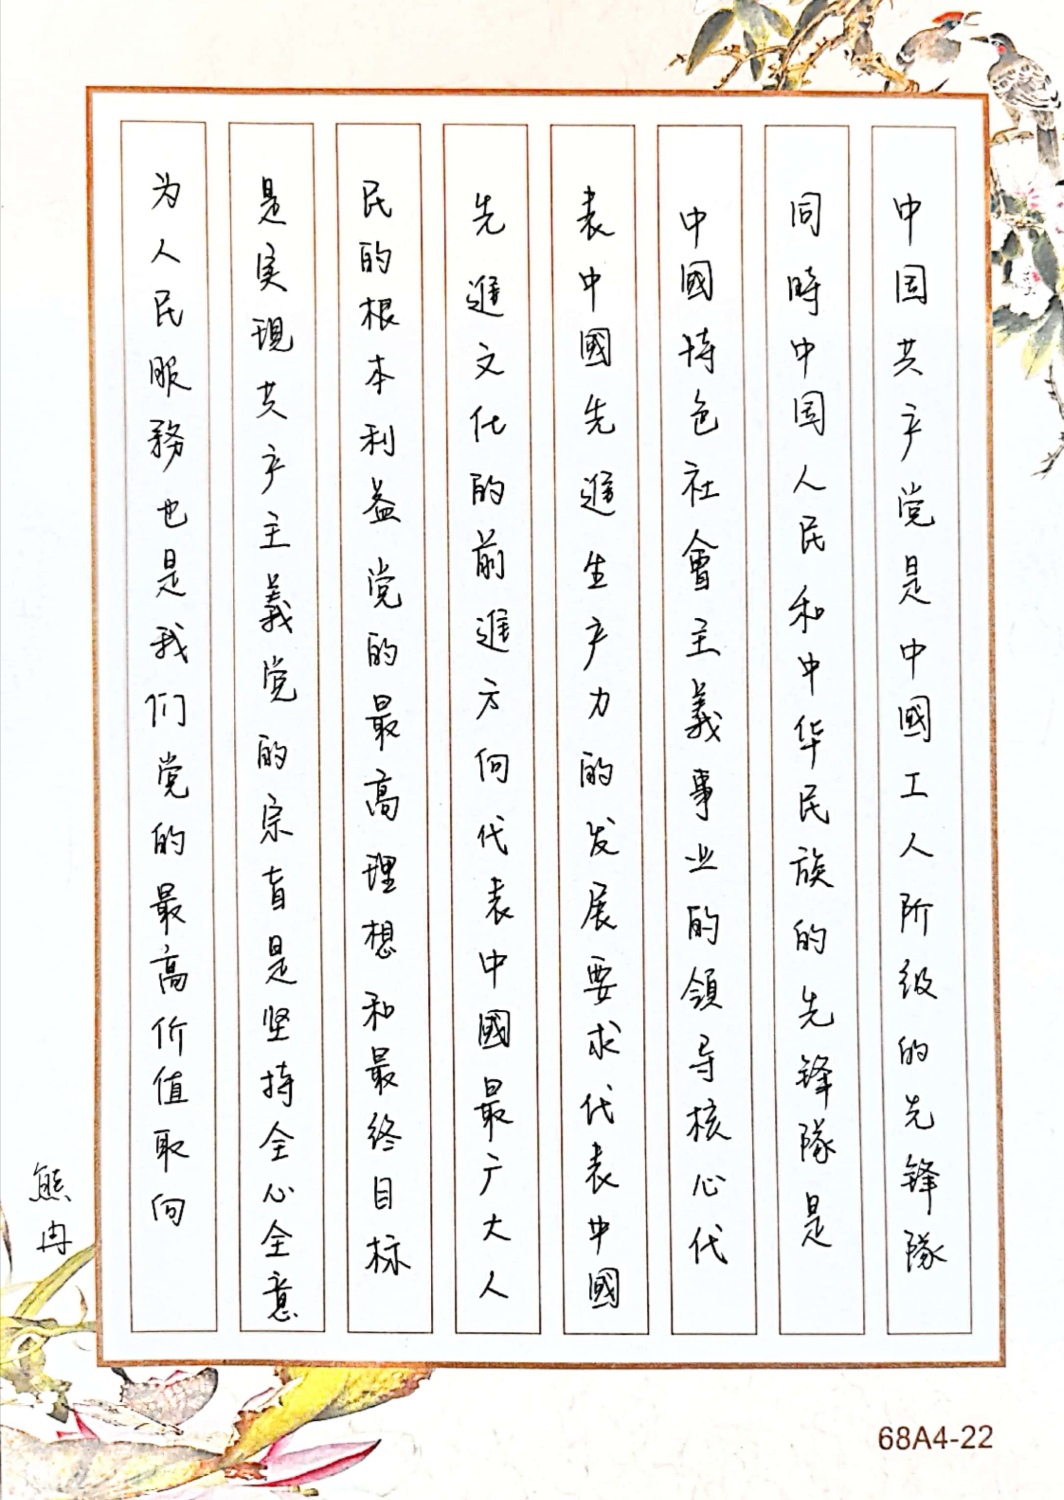 中国共产党是中國工人阶级的先锋隊
同時中国人民和中华民族的先锋隊是
中國特色社會主義事业的領导核心代
表中國先進生产力的发展要求代表中國
先進文化的前進方向代表中國最广大人
民的根本利益党的最高理想和最终目标
是実現共产主義党的宗旨是坚持全心全意
为人民服務也是我们党的最高价值取向
熊冉
68A4-22